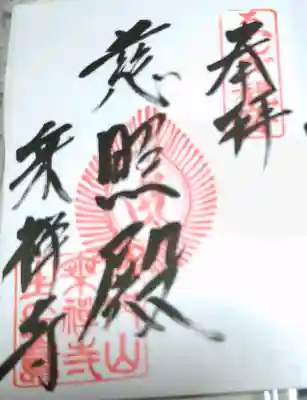 奉拝
慈照殿
乗禅寺